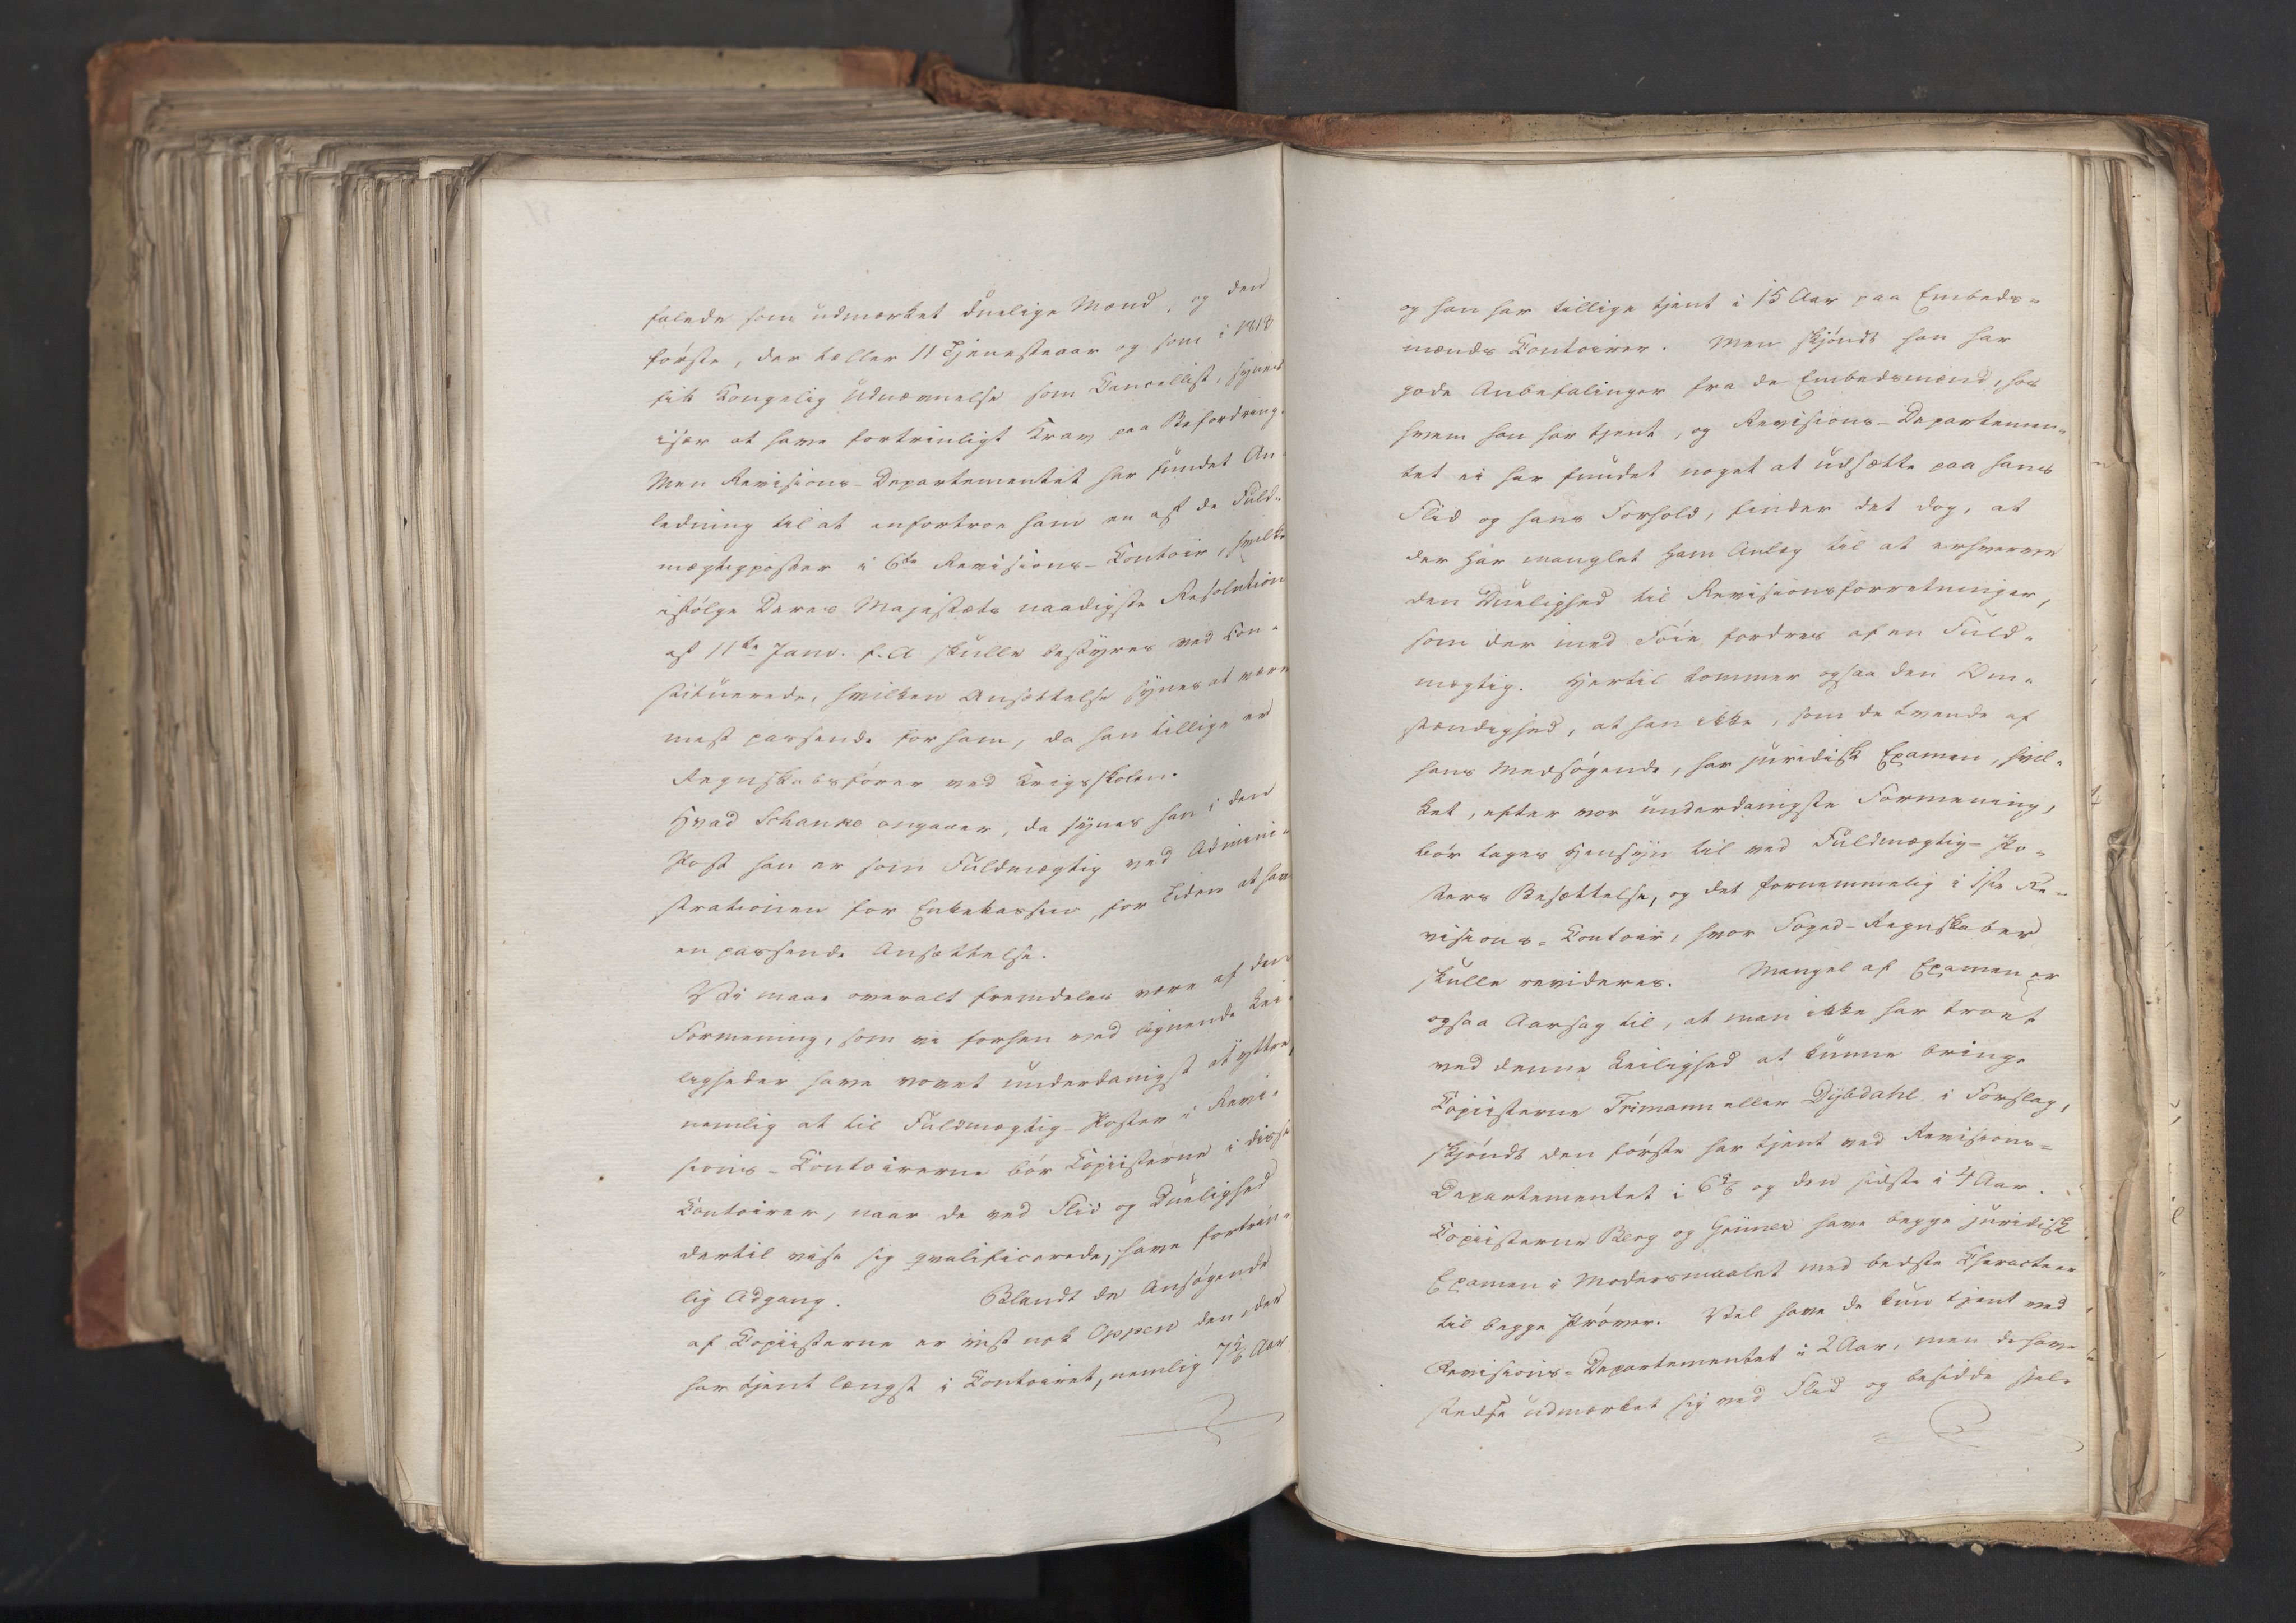 falede som udmærket duelige Mænd, og den
første, der tæller 11 Tjenesteaar og som i 1818
fik Kongelig Udnævnelse som Cancellist, synes
især at have fortrinligt Krav paa Befordring.
Men Revisions-Departementet har fundet An-
ledning til at anfortroe ham en af de Fuld-
mægtigposter i 6te Revisions-Contoir, hvilke
ifølge Deres Majestæts naadigste Resolution
af 11te Janv. f. A. skulle bestyres ved Con-
stituerede, hvilken Ansættelse synes at være
mest passende for ham, da han tillige er
Regnskabsfører ved Krigsskolen.
Hvad Schanke angaaer, da synes han i den
Post han er som Fuldmægtig ved Admini-
strationen for Enkekassen, for Tiden at have
en passende Ansættelse.
Vi maae overalt fremdeles være af den
Formening, som vi forhen ved lignende Lei-
ligheder have vovet underdanigst at yttre,
nemlig at til Fuldmægtig-Poster i Revi-
sions-Contoirerne bør Copiisterne i disse
Contoirer, naar de ved Flid og Duelighed
dertil vise sig qvalificerede, have fortrin-
lig Adgang. Blandt de Ansøgende
af Copiisterne er vist nok Oppen den, der
har tjent længst i Contoiret, nemlig 7 5/6 Aar
og han har tillige tjent i 15 Aar paa Embeds-
mænds Contoirer. Men skjøndt han har
gode Anbefalinger fra de Embedsmænd, hos
hvem han har tjent, og Revisions-Departemen-
tet ei har fundet noget at udsætte paa hans
Flid og hans Forhold, finder det dog, at
der har manglet ham Anlæg til at erhverve
den Duelighed til Revisionsforretninger,
som der med Føie fordres af en Fuld-
mægtig. Hertil kommer ogsaa den Om-
stændighed, at han ikke, som de tvende af
hans Medsøgende, har juridisk Examen, hvil-
ket, efter vor underdanigste Formening,
bør tages Hensyn til ved Fuldmægtig-Po-
sters Besættelse, og det fornemmelig i 1ste Re-
visions-Contoir, hvor Foged-Regnskaber
skulle revideres. Mangel af Examen er
ogsaa Aarsag til, at man ikke har troet
ved denne Leilighed at kunne bringe
Copiisterne Trimann eller Dybdahl i Forslag,
skjøndt den første har tjent ved Revisions-
Departementet i 6 5/6 og den sidste i 4 Aar.
Copiisterne Berg og Heimer have begge juridisk
Examen i Modersmaalet med bedste Characteer
til begge Prøver. Vel have de kun tjent ved
Revisions-Departementet i 2 Aar, men de have
stedse udmærket sig ved Flid og besidde sjel-